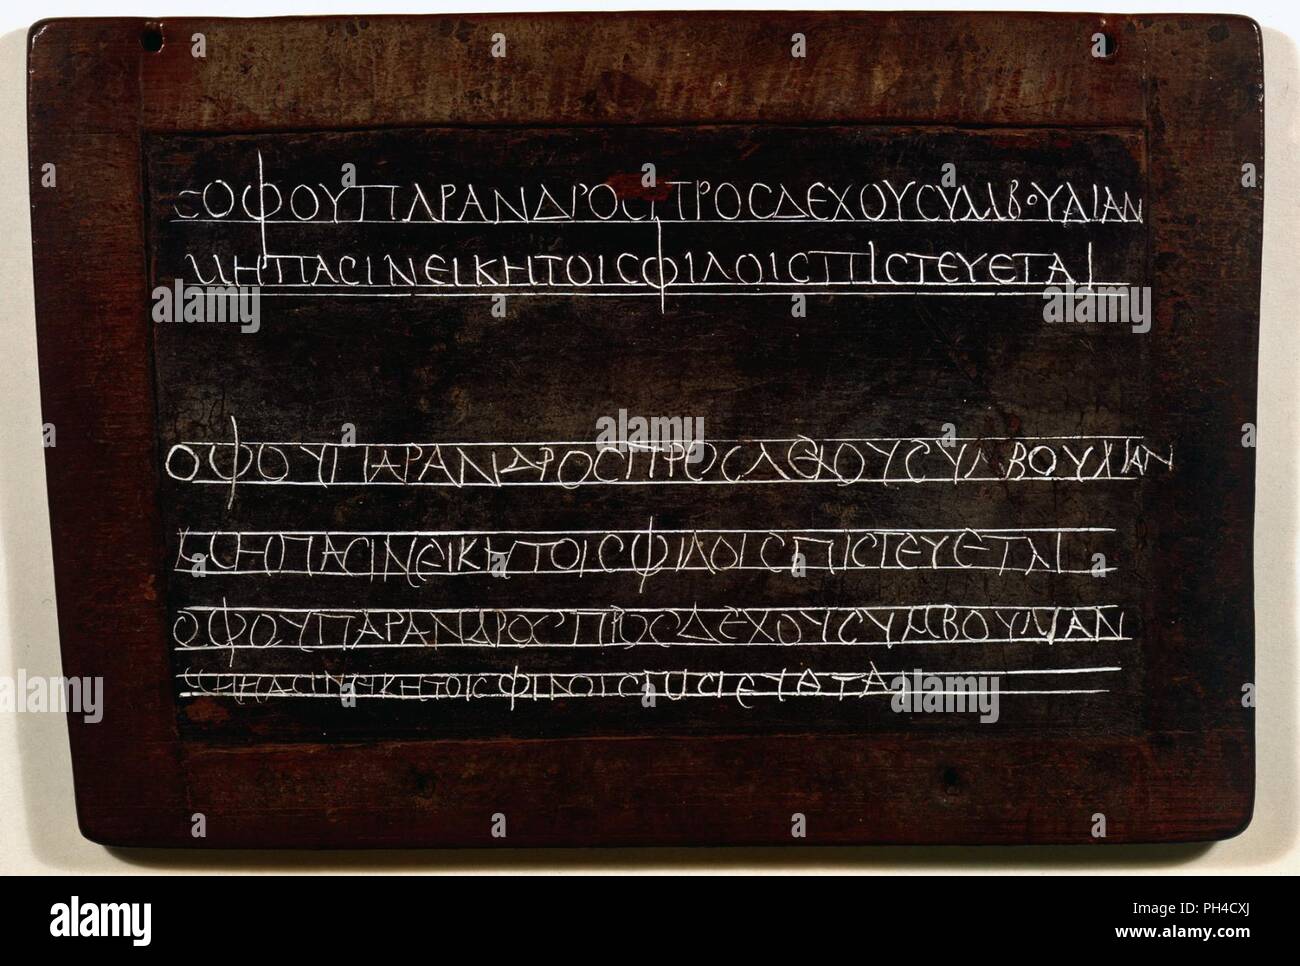 ϹΟΦΟΥΠΑΡΑΝΔΡΟϹΠΡΟϹΔΕΧΟΥϹΥΜΒΟΥΛΙΑΝ
ΜΗΠΑϹΙΝΕΙΚΗΤΟΙϹΦΙΛΟΙϹΠΙϹΤΕΥΕΤΑΙ
ΟΦΟΥΠΑΡΑΝΔΡΟϹΠΡΟϹΔΕΧΟΥϹΥΜΒΟΥΛΙΑΝ
ΜΗΠΑϹΙΝΕΙΚΗΤΟΙϹΦΙΛΟΙϹΠΙϹΤΕΥΕΤΑΙ
ΟΦΟΥΠΑΡΑΝΔΡΟϹΠΡΟϹΔΕΧΟΥϹΥΜΒΟΥΛΙΑΝ
ΜΗΠΑϹΙΝΕΙΚΗΤΟΙϹΦΙΛΟΙϹΠΙϹΤΕΥΕΤΑΙ
alamy
Image ID: PH4CXJ
www.alamy.com